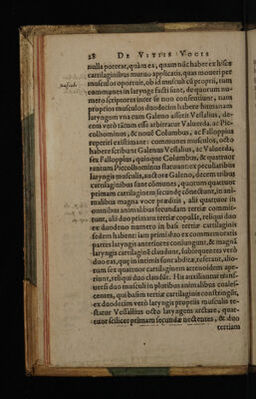 28 DE VITIIS VOCIS
nulla poterat, quàm ea, quam nũc habet ex hisce
cartilaginibus mutuo applicatis, quas moueri per
musculos oportuit, ob id musculi cũ proprij, tum
communes in larynge facti sunt, de quorum nu-
mero scriptores inter se non consentiunt, nam
proprios musculos duodecim habere humanam
laryngem vna cum Galeno asserit Vessalius, de-
cem verò tantum esse arbitratur Valuerda, ac Pic-
colhominus, & nouẽ Columbus, ac Fallopius
reperiri existimant: communes musculos, octo
habere scribunt Galenus Vessalius, ac Valuerda,
sex Fallopius, quinque Columbus, & quattuor
tantum Piccolhominus statuunt: ex peculiaribus
laryngis musculis, auctore Galeno, decem tribus
cartilaginibus sunt cõmunes, quorum quattuor
primam cartilaginem secundę cõnectunt, in ani-
malibus magna voce præditis, alij quattuor in
omnibus animalibus secundam tertiæ commit-
tunt, alij duo primam tertiæ copulãt, reliqui duo
ex duodeno numero in basi tertiæ cartilaginis
sedem habent: iam primi duo ex commemoratis
partes laryngis anteriores coniungunt, & magnã
laryngis cartilaginẽ claudunt, subsequentes verò
duo eas, quę in intimis sunt abditæ, referant, alio-
rum sex quattuor cartilaginem arytenoidem ape-
riunt, reliqui duo claudũt. His auxiliantur trans-
uersi duo musculi in pluribus animalibus coales-
centes, qui basim tertiæ cartilaginis constringũt,
ex duodecim verò laryngis proprijs musculis te-
statur Vessallius octo laryngem arctare, quat-
tuor scilicet primam secundæ nectentes, & duo
tertiam